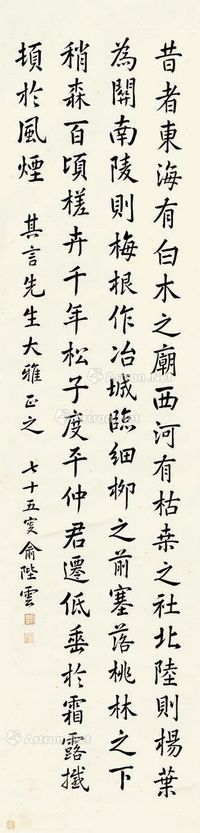 昔者東海有白木之廟西河有枯桑之社北陸則楊葉
為關南陵則梅根作冶城臨細柳之前塞落桃林之下
稍森百頃槎卉千年松子度平仲君遷低垂於霜露撼
頓於風煙
其言先生大雅正之
七十五叟俞陛雲